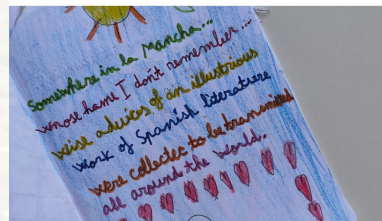 Somewhere in la Mancha...
whose name I don't remember...
wise advices of an illustrious
work of Spanish literature
were collected to be transmited
all around the world.